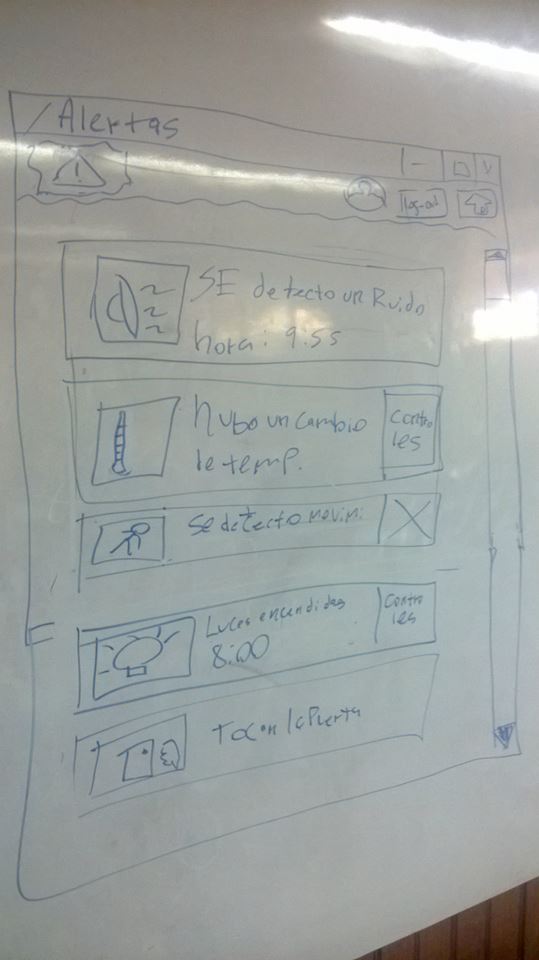 Alertas
!
log-out
SE detecto un Ruido
hora: 9:55
hubo un cambio
de temp.
contro
les
se detecto movim:
Luces encendidas
8:00
contro
les
Tocan la Puerta